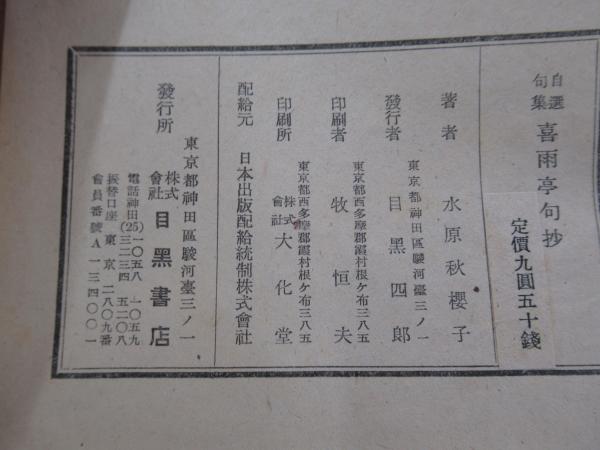 自選
句集
喜雨亭句抄
定價九圓五十錢
著者 水原秋櫻子
東京都神田區駿河臺三ノ一
發行者 目黑四郎
東京都西多摩郡霞村根ケ布三八五
印刷者 牧恒夫
東京都西多摩郡霞村根ケ布三八五
印刷所 株式會社 大化堂
配給元 日本出版配給統制株式會社
東京都神田區駿河臺三ノ一
發行所 株式會社 目黑書店
電話神田(25)一〇五八 一〇五九
三二三四 五二〇八
振替口座東京二八〇九番
會員番號A一三四〇〇一